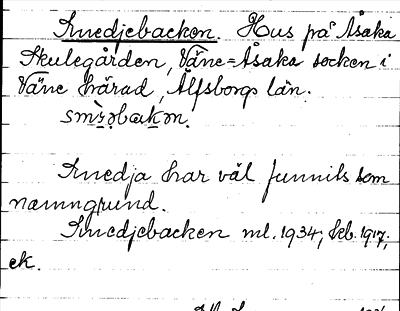 Smedjebacken. Hus på Åsaka
Skulegården, Väne-Åsaka socken i
Väne härad, Älfsborgs län.
Smedja har väl funnits som
namngrund.
Smedjebacken ml. 1934; kb. 1917;
ek.